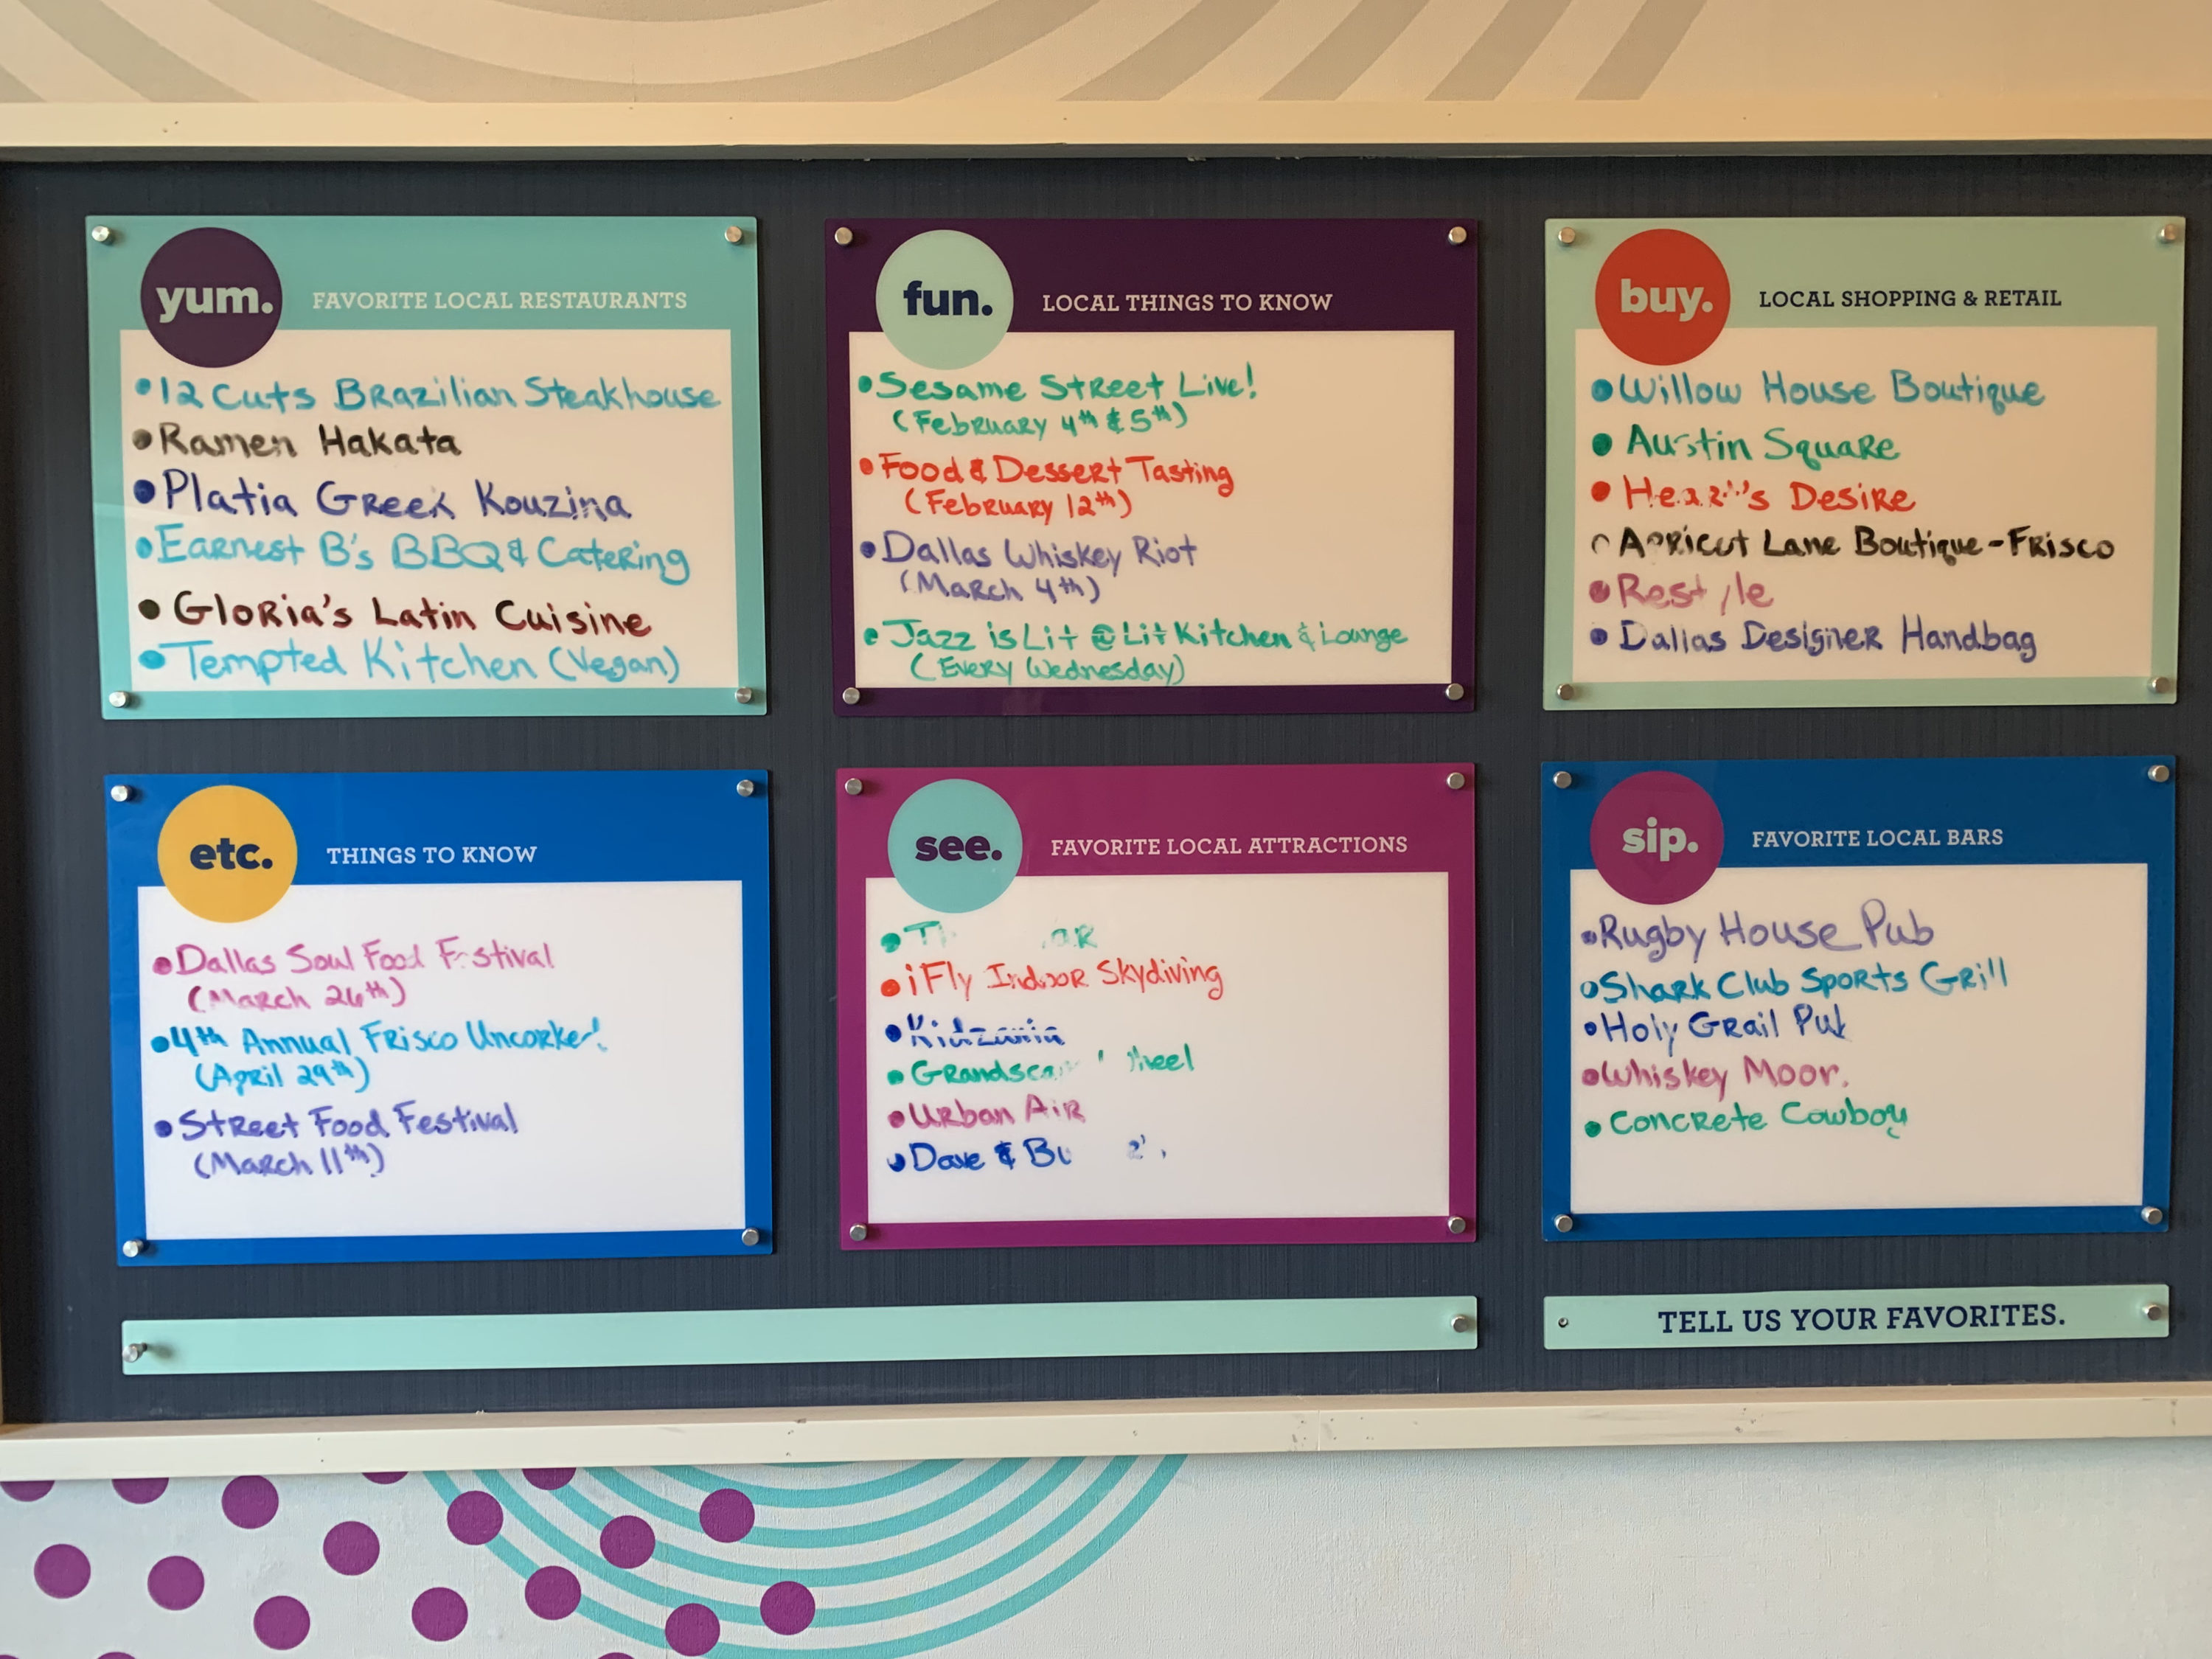 yum.
FAVORITE LOCAL RESTAURANTS
• 12 Cuts Brazilian Steakhouse
• Ramen Hakata
• Platia Greek Kouzina
• Earnest B's BBQ & Catering
• Gloria's Latin Cuisine
• Tempted Kitchen (Vegan)
fun.
LOCAL THINGS TO KNOW
• Sesame Street Live!
(February 4th & 5th)
• Food & Dessert Tasting
(February 12th)
• Dallas Whiskey Riot
(March 4th)
• Jazz is Lit @ Lit Kitchen & Lounge
(Every Wednesday)
buy.
LOCAL SHOPPING & RETAIL
• Willow House Boutique
• Austin Square
• Heart's Desire
• Apricot Lane Boutique - Frisco
• Restyle
• Dallas Designer Handbag
etc.
THINGS TO KNOW
• Dallas Soul Food Festival
(March 26th)
• 4th Annual Frisco Uncorked!
(April 29th)
• Street Food Festival
(March 11th)
see.
FAVORITE LOCAL ATTRACTIONS
• iFly Indoor Skydiving
• Kidzania
• Urban Air
• Dave &
sip.
FAVORITE LOCAL BARS
• Rugby House Pub
• Shark Club Sports Grill
• Holy Grail Pub
• Whiskey
• Concrete Cowboy
TELL US YOUR FAVORITES.